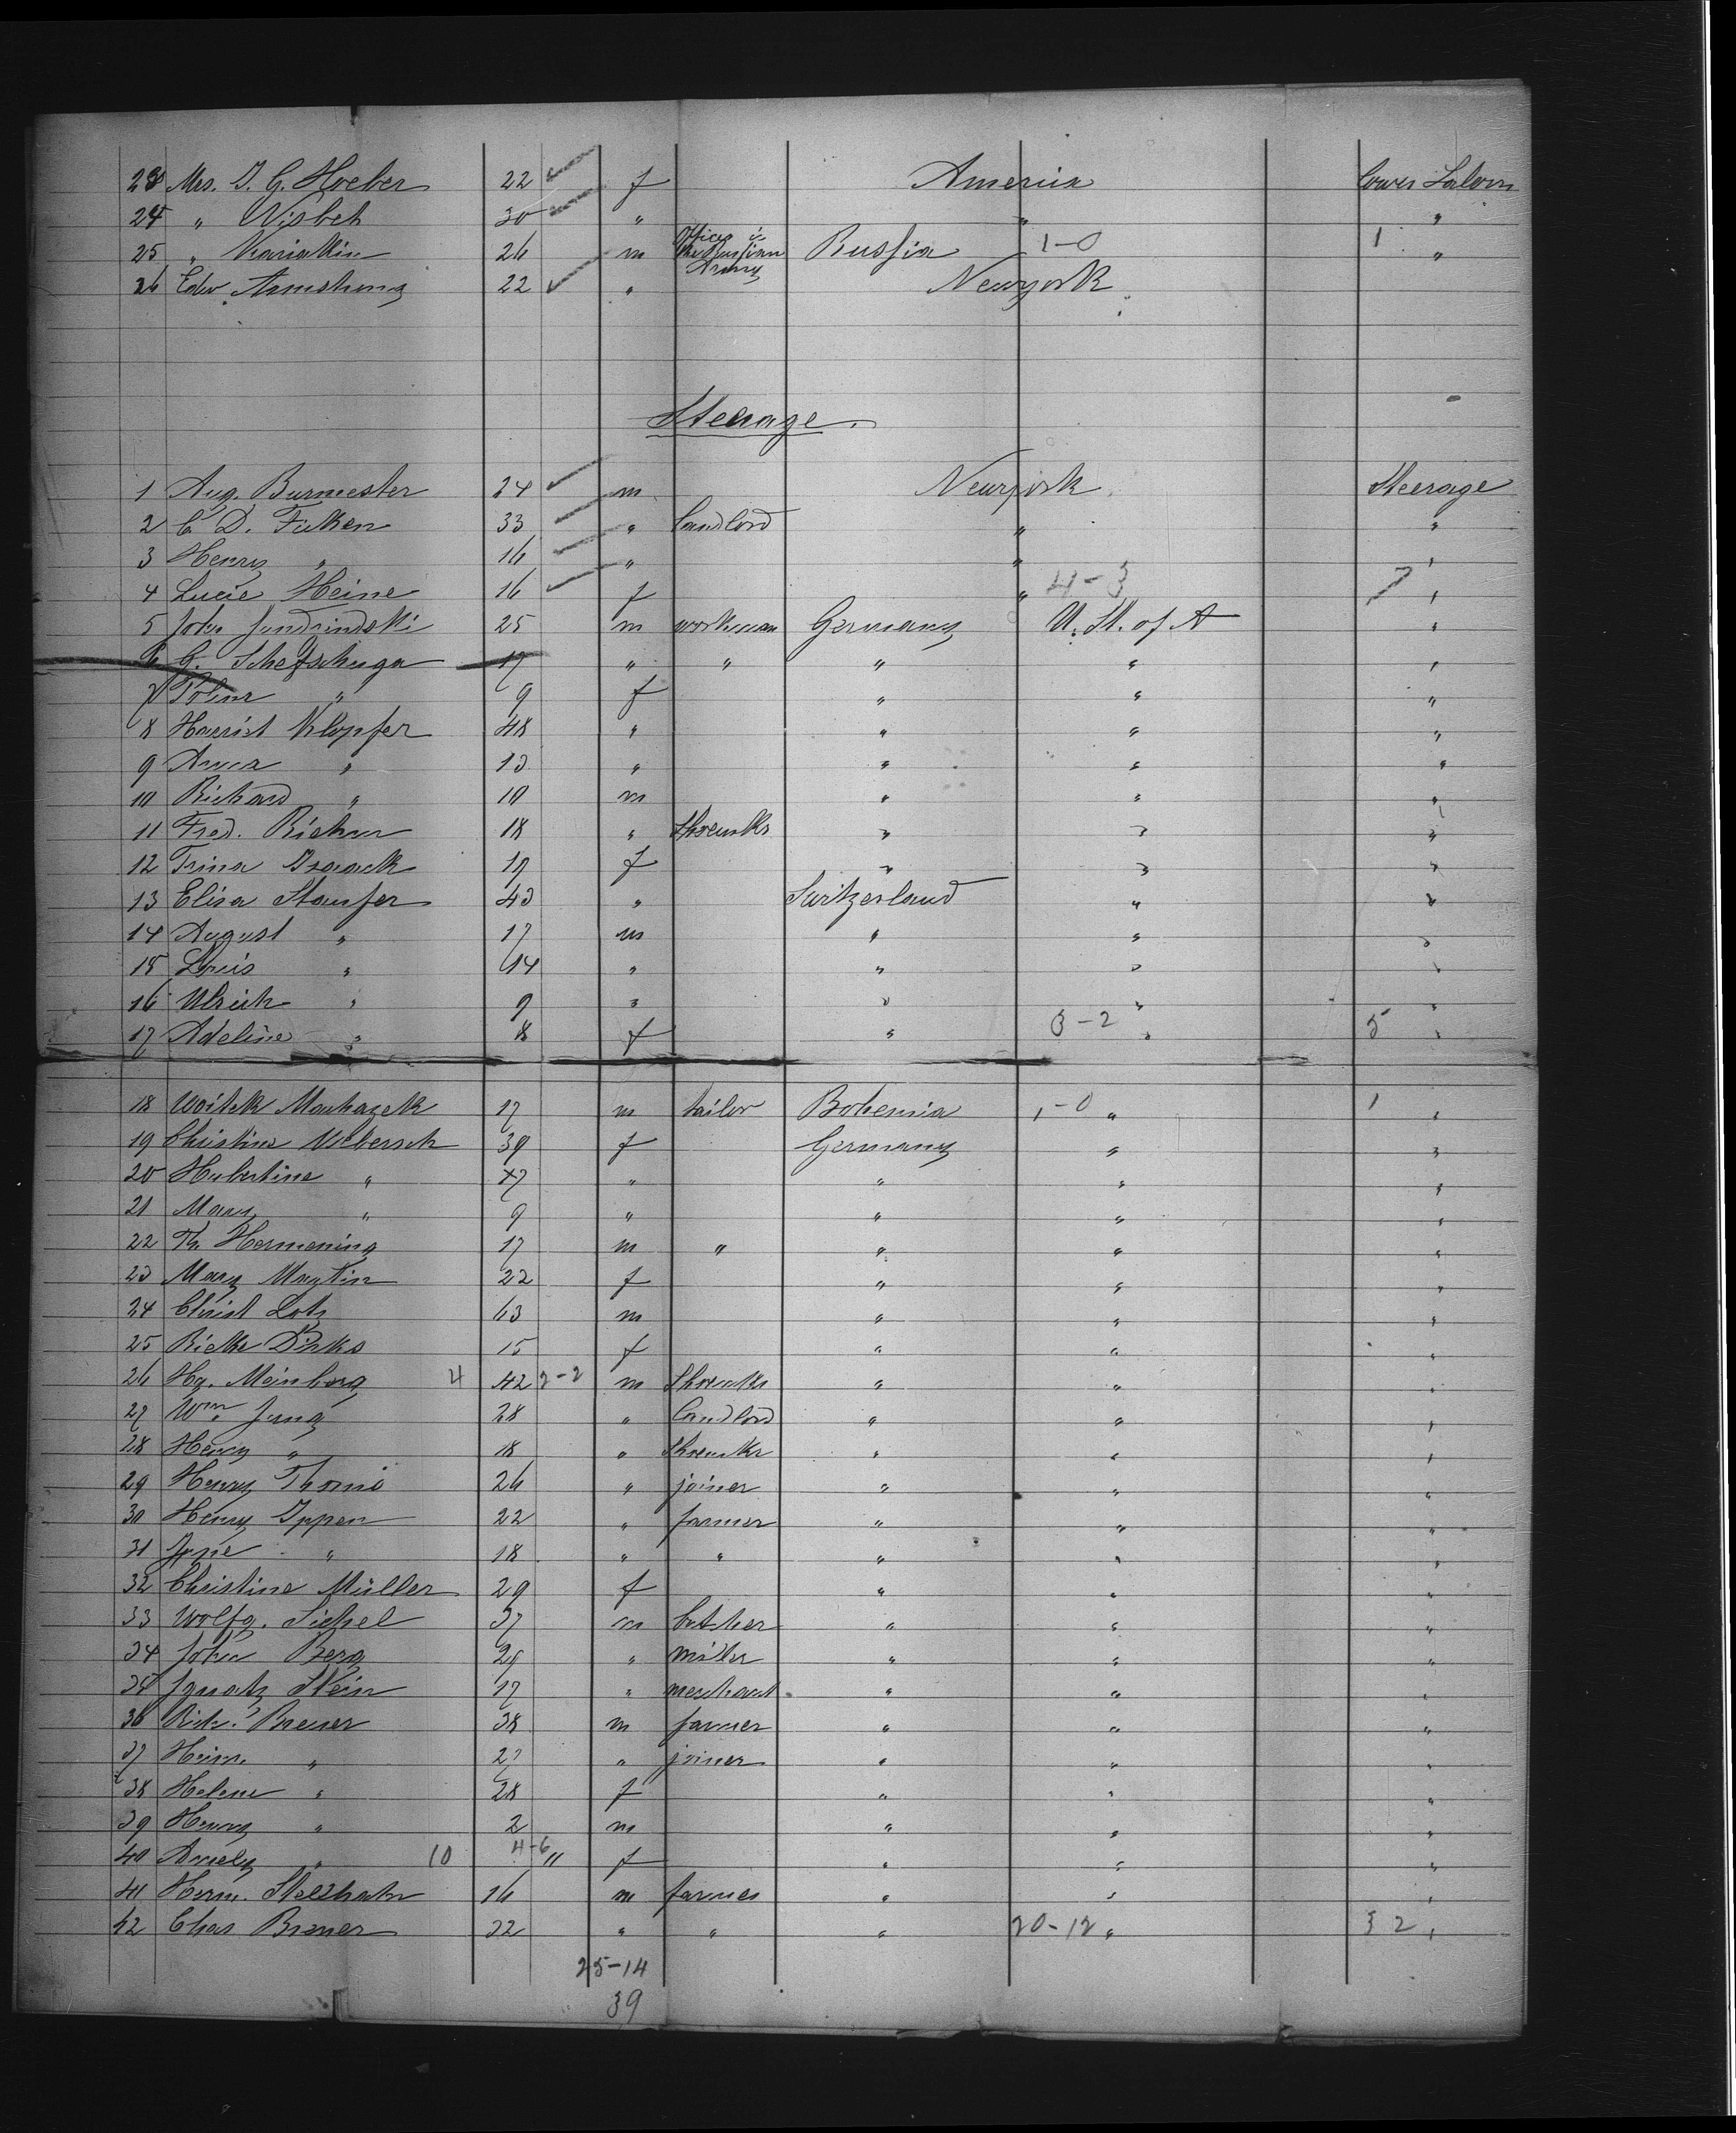 23 Mrs. J. G. Hoeber 22 f America Lower Saloon
24 " Nisbeth 30 " " "
25 " Kariakin 26 m Officer in the Russian Army Russia 1-0 1 "
26 Edw. Armstrong 22 " Newyork
Steerage.
1 Aug. Burmester 24 m Newyork Steerage
2 C. D. Ficken 33 " landlord " "
3 Henry " 16 " " "
4 Lucie Heine 16 f " 4-3 7 "
5 John Jendrindski 25 m workman Germany U. St. of A "
6 G. Schefschuga 17 " " " " "
7 " 9 f " " "
8 Harriet Klopfer 48 " " " "
9 Anna " 13 " " " "
10 Richard " 10 m " " "
11 Fred. 18 " Shoemkr " " "
12 Trina Isaack 19 f " " "
13 Elisa Staufer 43 " Switzerland " "
14 August " 17 m " " "
15 Louis " 14 " " " "
16 Ulrich " 9 " " " "
17 Adeline " 18 f " 3-2 " 5 "
18 Woitek Machazek 17 m tailor Bohemia 1-0 " 1 "
19 Christine Uebersch 39 f Germany " "
20 Hubertine " 17 " " " "
21 Mary " 9 " " " "
22 Th. Hermening 17 m " " " "
23 Mary Maytin 22 f " " "
24 Christ Lotz 63 m " " "
25 Rieke Dirks 15 f " " "
26 Hy. Meinberg 4 42 2-2 m Shoemkr " " "
27 Wm. Jung 28 " landlord " " "
28 Henry " 18 " Shoemkr " " "
29 Henry 26 " joiner " " "
30 Henry Ippen 22 " farmer " " "
31 " 18 " " " " "
32 Christine Müller 29 f " " "
33 Wolfg. Sichel 37 m butcher " " "
34 John Berg 29 " miller " " "
35 Ignatz Stein 17 " merchant " " "
36 Rich. Breuer 38 m farmer " " "
37 Heinr. " 27 " joiner " " "
38 Helene " 28 f " " "
39 Henry " 2 m " " "
40 Amely " 10 4-6 " f " " "
41 Herm. Stelzhahn 16 m farmer " " "
42 Chas Bremer 22 " " " 20-12 " 32 "
25-14
39